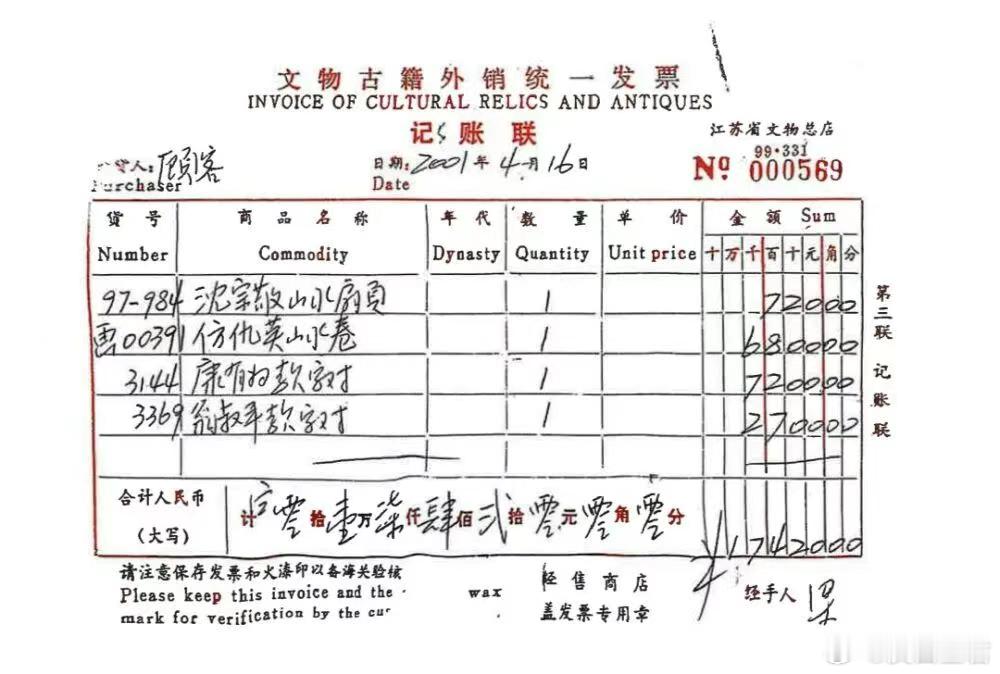 文物古籍外销统一发票
INVOICE OF CULTURAL RELICS AND ANTIQUES
记账联
江苏省文物总店
99·331
Nº 000569
货人:顾客
Purchaser
日期:2001年4月16日
Date
货号 商品名称 年代 数量 单价 金额 Sum
Number Commodity Dynasty Quantity Unit price 十万千百十元角分
97-984 沈宗敬山水扇页 1 72000
00391 仿仇英山水卷 1 680000
3144 康有为款字对 1 720000
3369 翁叔平款字对 1 270000
合计人民币
(大写)
计 零拾壹万柒仟肆佰贰拾零元零角零分
¥1742000
请注意保存发票和火漆印以备海关验核
Please keep this invoice and the wax
mark for verification by the cus
经售商店
盖发票专用章
经手人 梁
第三联 记账联